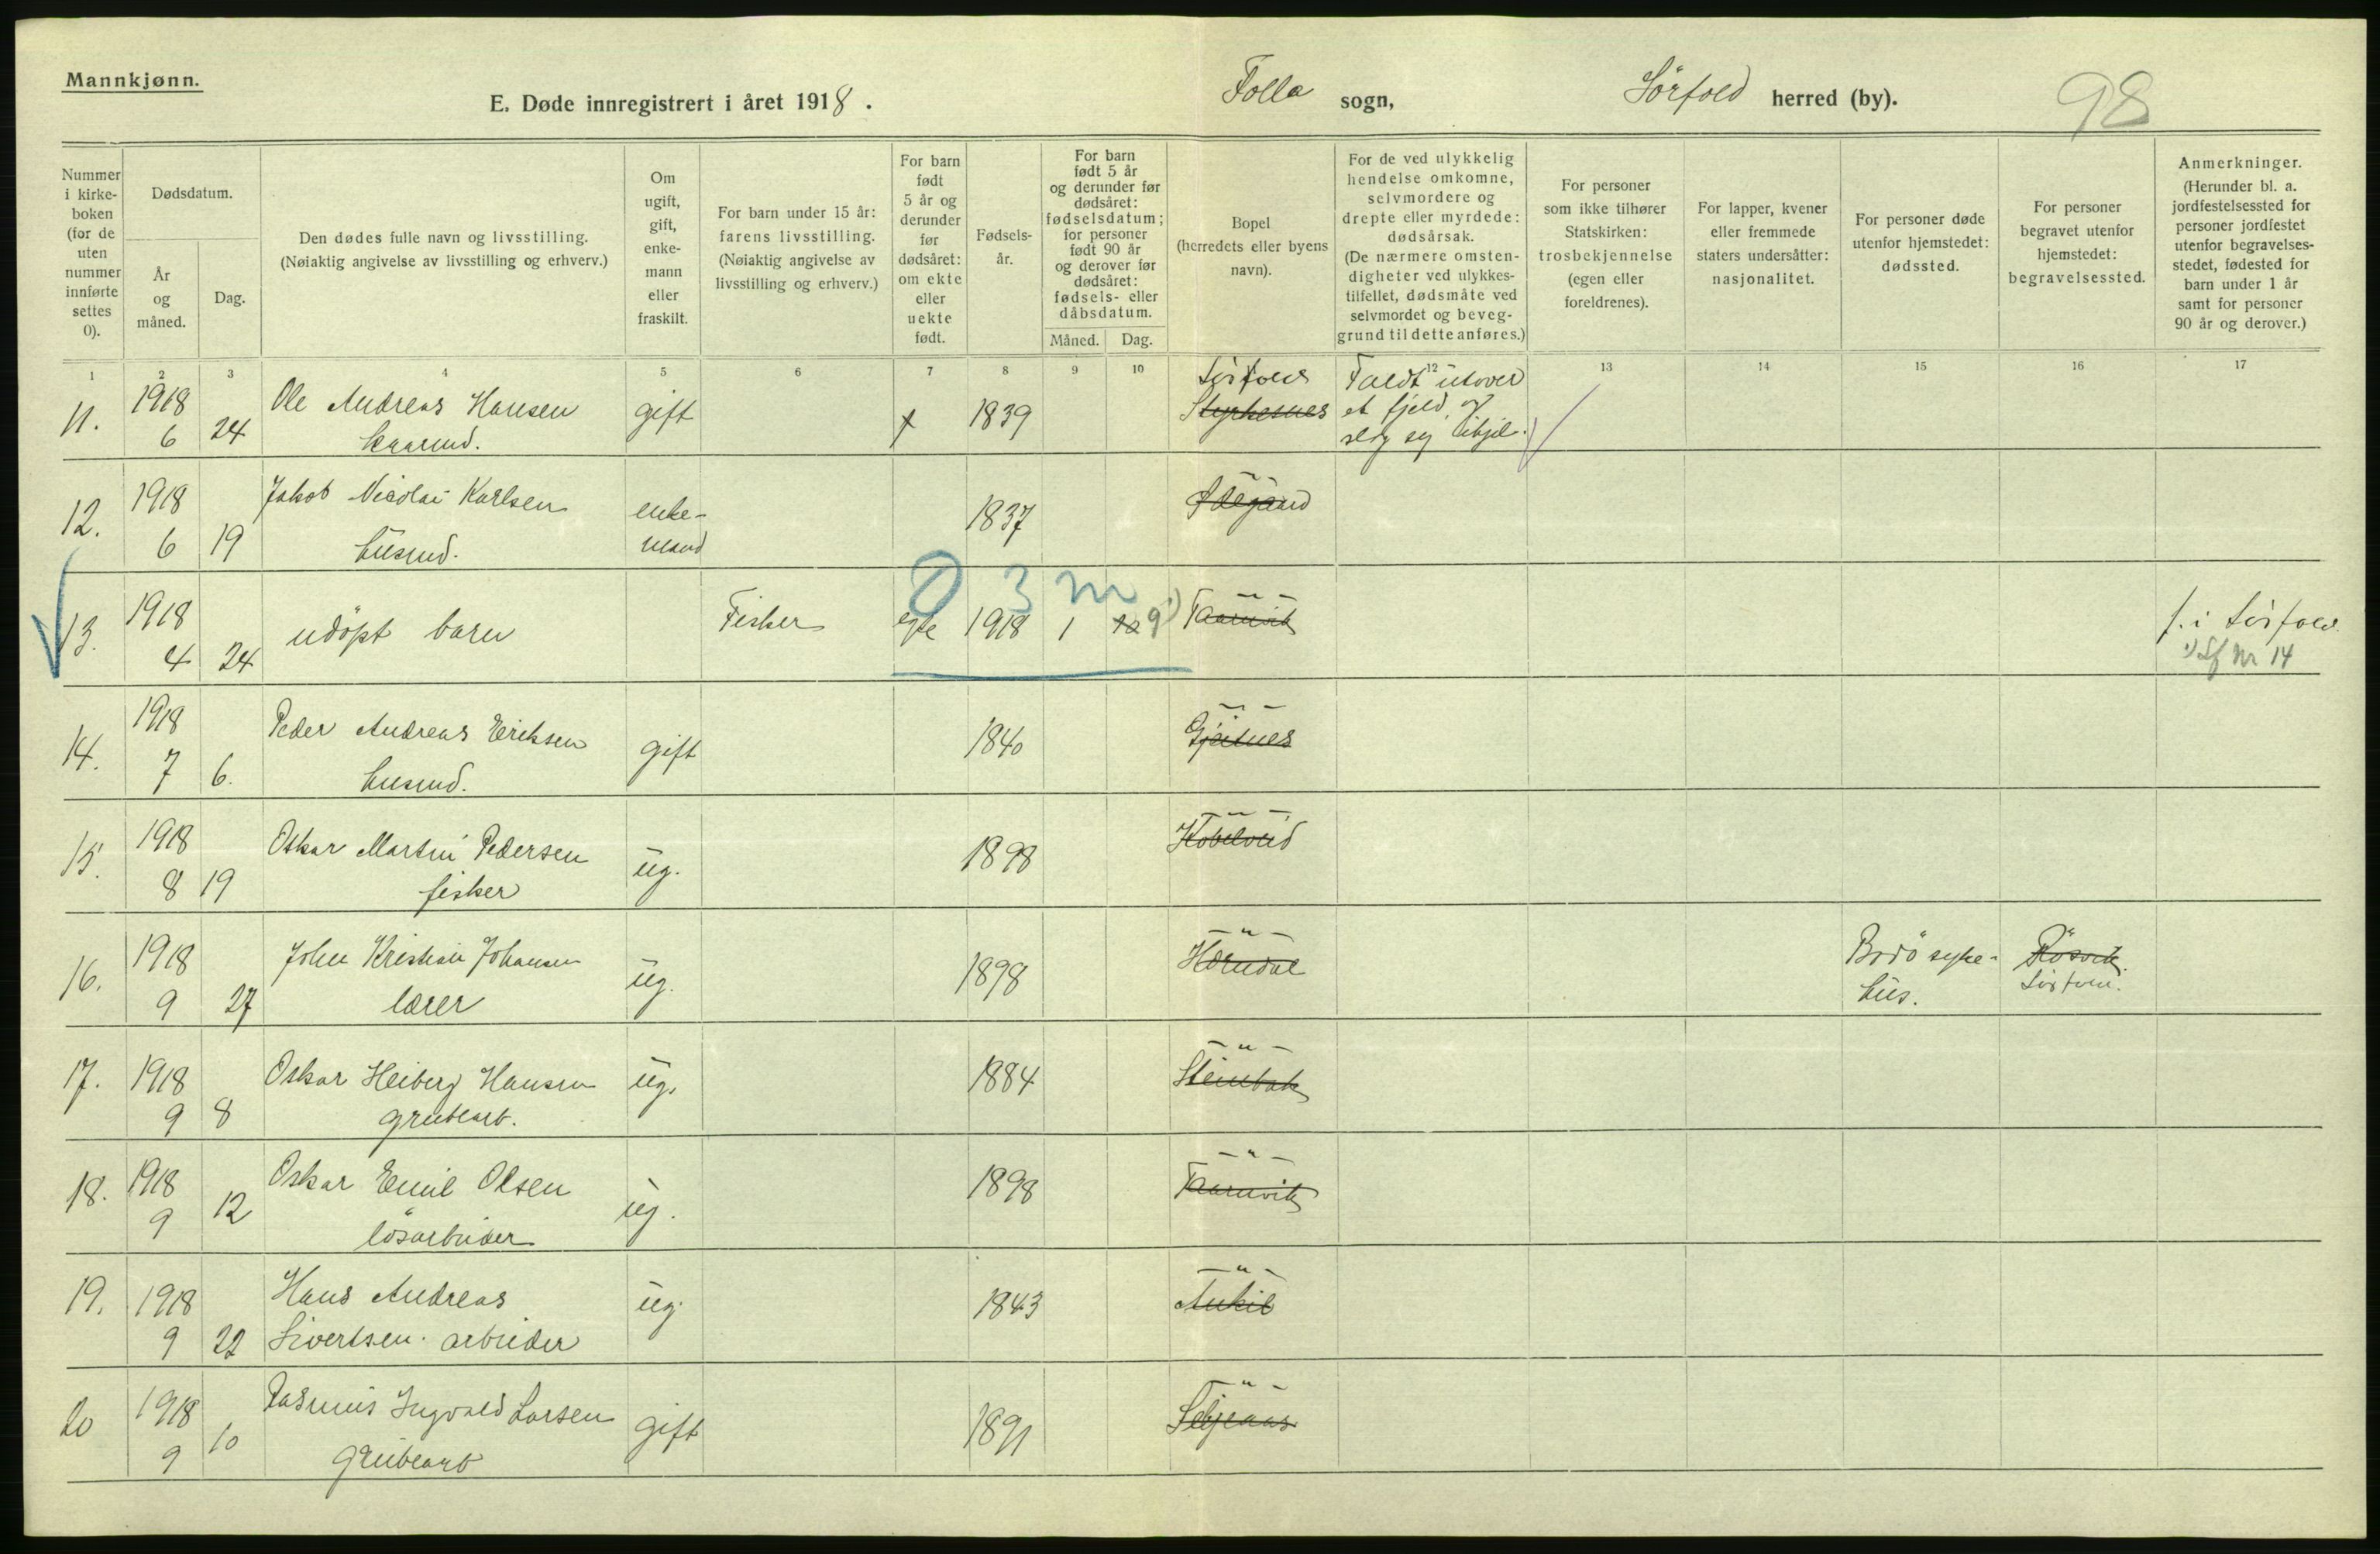 Mannkjønn.
E. Døde innregistrert i året 1918.
Folla sogn,
Sörfold herred (by).
98
Nummer
i kirke-
boken
(for de
uten
nummer
innførte
settes
0).
Dødsdatum.
År
og
måned.
Dag.
Den dødes fulle navn og livsstilling.
(Nøiaktig angivelse av livsstilling og erhverv.)
Om
ugift,
gift,
enke-
mann
eller
fraskilt.
For barn under 15 år:
farens livsstilling.
(Nøiaktig angivelse av
livsstilling og erhverv.)
For barn
født
5 år og
derunder
før
dødsåret:
om ekte
eller
uekte
født.
Fødsels-
år.
For barn
født 5 år
og derunder før
dødsåret:
fødselsdatum;
for personer
født 90 år
og derover før
dødsåret:
fødsels- eller
dåbsdatum.
Måned.
Dag.
Bopel
(herredets eller byens
navn).
For de ved ulykkelig
hendelse omkomne,
selvmordere og
drepte eller myrdede:
dødsårsak.
(De nærmere omsten-
digheter ved ulykkes-
tilfellet, dødsmåte ved
selvmordet og beveg-
grund til dette anføres.)
For personer
som ikke tilhører
Statskirken:
trosbekjennelse
(egen eller
foreldrenes).
For lapper, kvener
eller fremmede
staters undersåtter:
nasjonalitet.
For personer døde
utenfor hjemstedet:
dødssted.
For personer
begravet utenfor
hjemstedet:
begravelsessted.
Anmerkninger.
(Herunder bl. a.
jordfestelsessted for
personer jordfestet
utenfor begravelses-
stedet, fødested for
barn under 1 år
samt for personer
90 år og derover.)
1 2 3 4 5 6 7 8 9 10 12 13 14 15 16 17
11. 1918 6 24 Ole Andreas Hansen
gift 1839 Sörfold
Styrkesnes
Faldt utover
et fjeld og
slog sig ihjel.
12. 1918 6 19 Jakob Nicolai Karlsen
husmd.
enke-
mand
1837 - " -
Ødegaard
13. 1918 4 24 udöpt barn
Fisker
0 3 m
egte 1918 1 12 9 1)
- " -
Taarnvik
f. i Sörfold.
1) Nr 14
14. 1918 7 6. Peder Andreas Eriksen
husmd.
gift 1840 - " -
Gjeitnes
15. 1918 8 19 Oskar Martin Pedersen
fisker
ug. 1898 - " -
Kobelveid
16. 1918 9 27 John Kristian Johansen
lærer
ug. 1898 - " -
Horndal
Bodö syke-
hus.
Rösvik.
Sörfold.
17. 1918 9 8 Oskar Heiberg Hansen
grubearb.
ug. 1884 - " -
Steinbak
18. 1918 9 12 Oskar Emil Olsen
lösarbeider
ug. 1898 - " -
Taarnvik
19. 1918 9 22 Hans Andreas
Sivertsen. arbeider
ug. 1843 - " -
20 1918 9 10 Rasmus Ingvald Larsen
grubearb
gift 1891 - " -